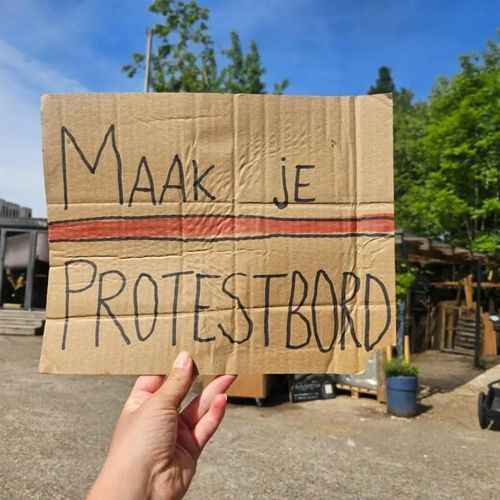 MAAK JE
PROTESTBORD